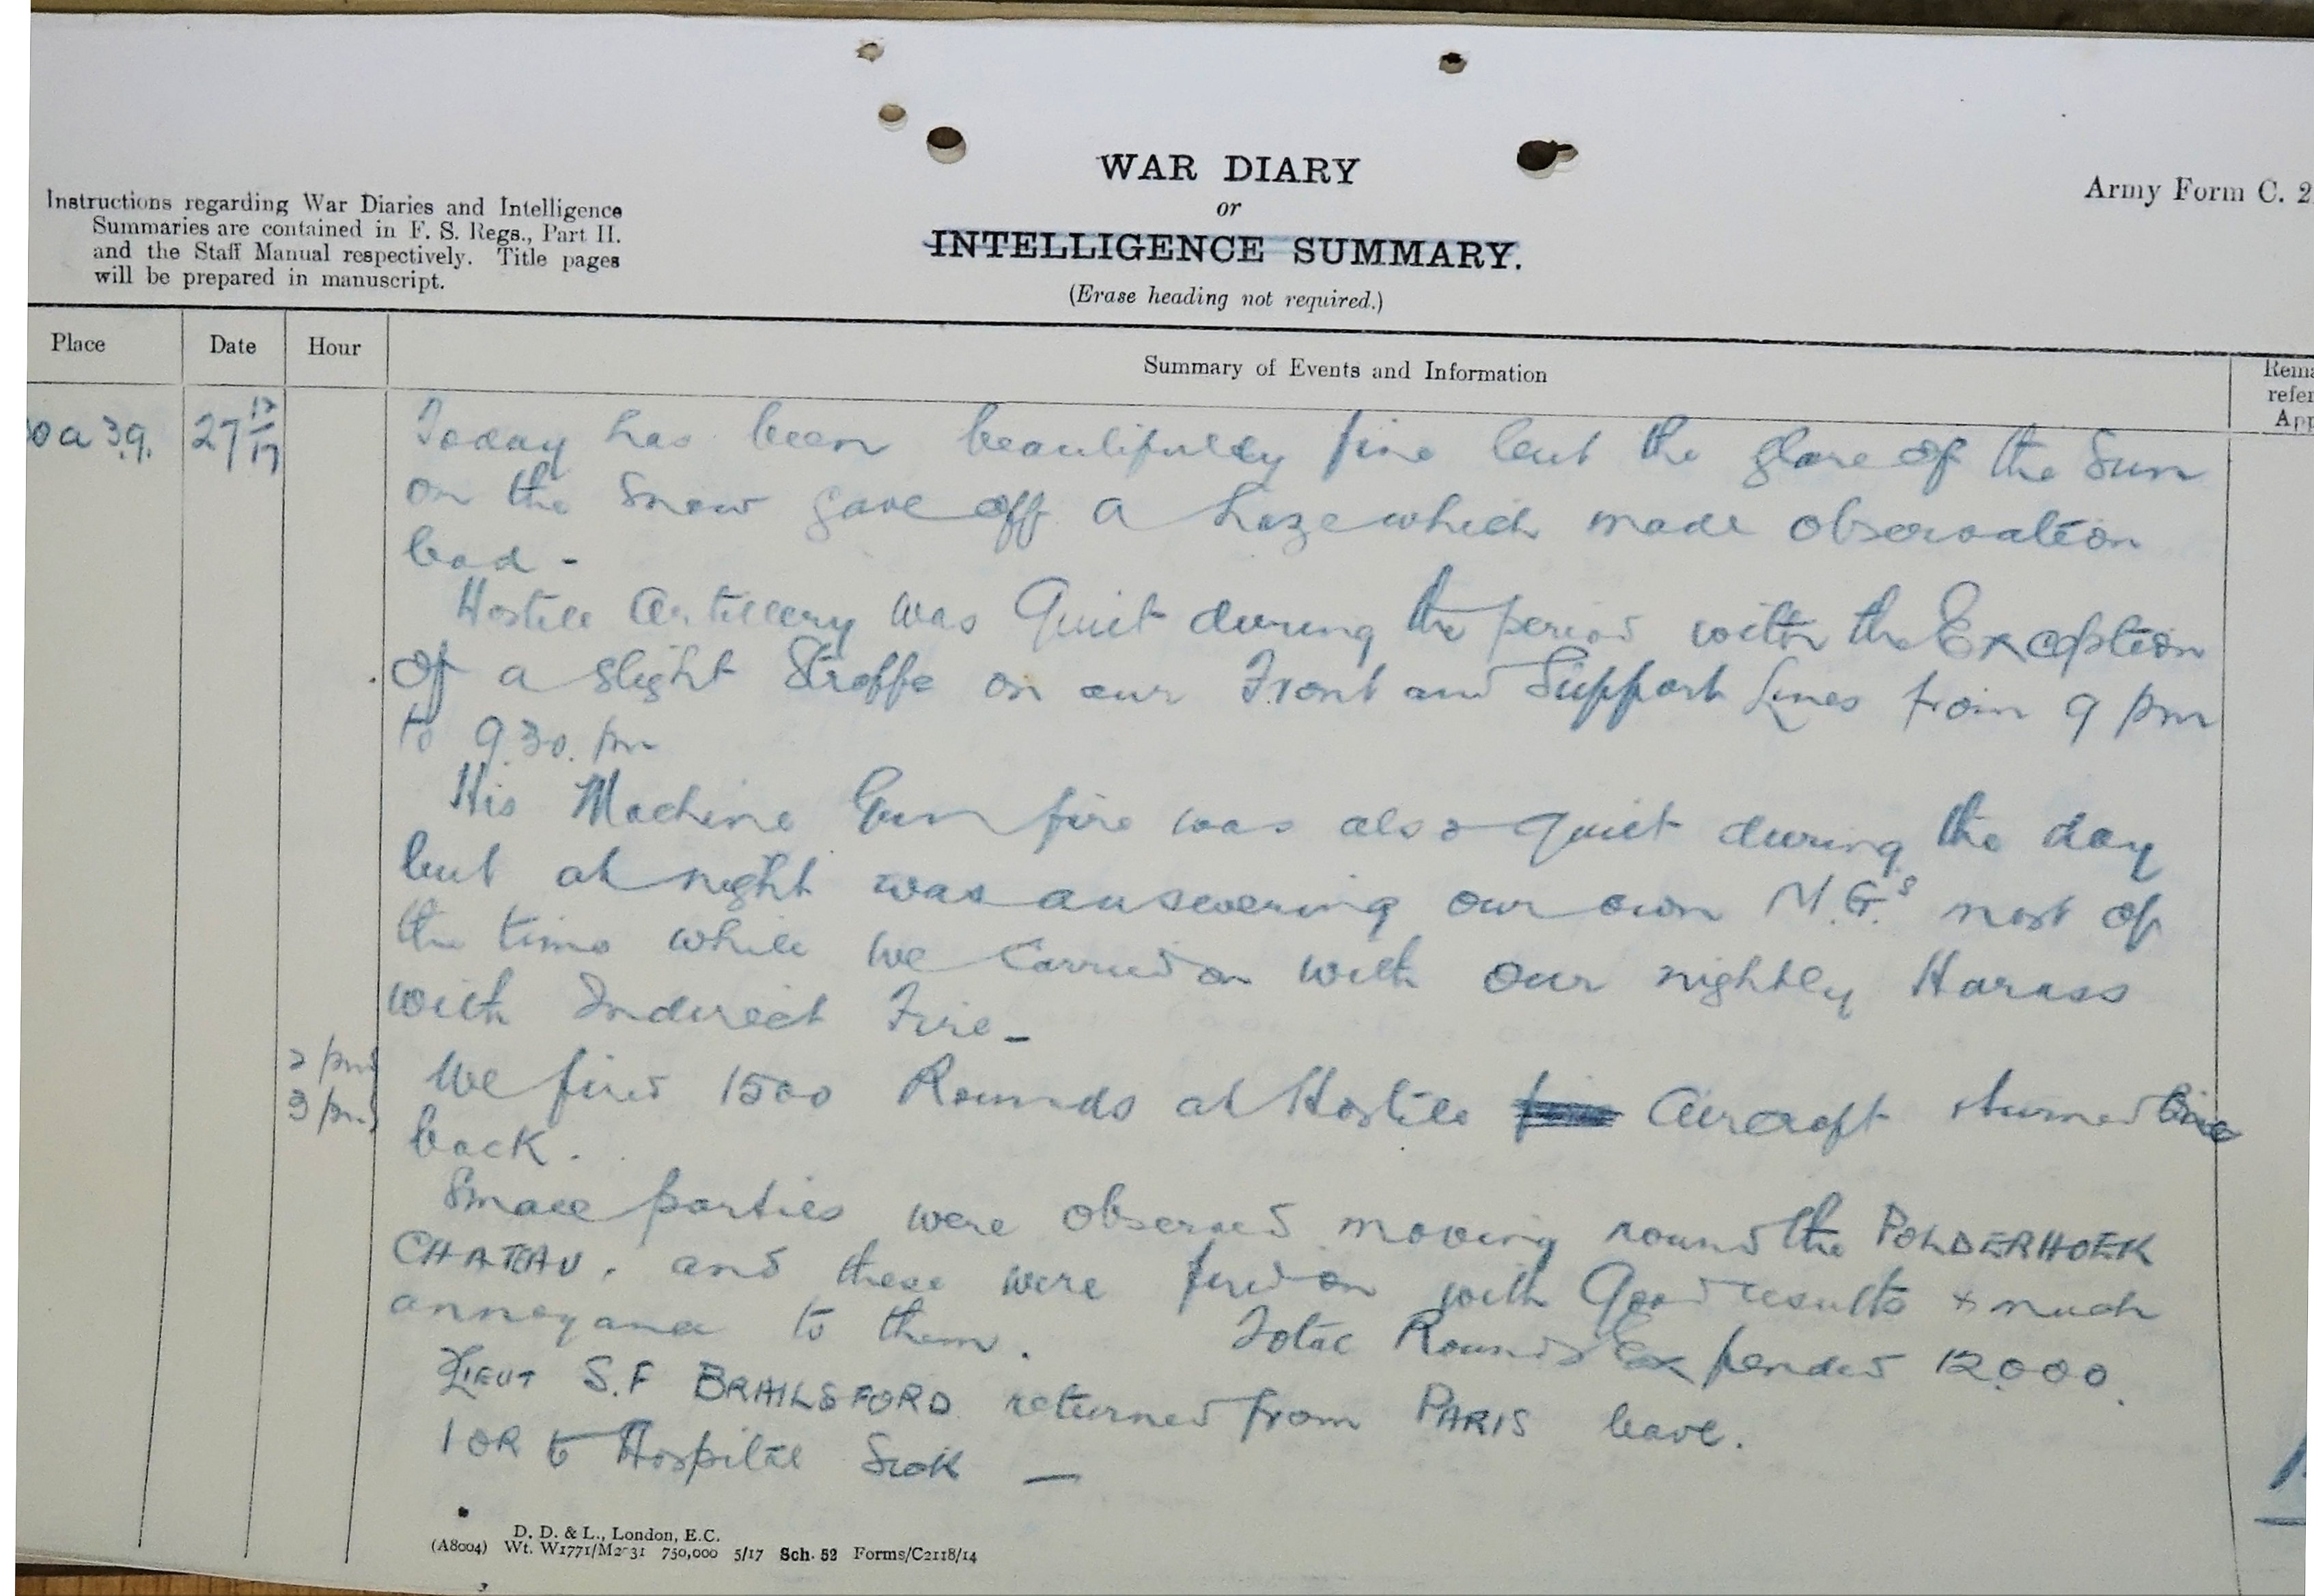 WAR DIARY
or
INTELLIGENCE SUMMARY.
(Erase heading not required.)
Army Form C. 2
Instructions regarding War Diaries and Intelligence
Summaries are contained in F. S. Regs., Part II.
and the Staff Manual respectively. Title pages
will be prepared in manuscript.
Place Date Hour Summary of Events and Information
Rema
refer
App
0 a 3.9. 27 12/17 Today has been beautifully fine but the glare of the Sun
on the Snow gave off a haze which made observation
bad -
Hostile Artillery was Quiet during the period with the Exception
of a slight Straffe on our Front and Support Lines from 9 pm
to 9.30. pm
His Machine Gun fire was also quiet during the day
but at night was answering our own M.G.s most of
the time while we Carried on with our nightly Harass
with Indirect Fire -
2 pm
3 pm
We fired 1500 Rounds at Hostile Aircraft & turned
back.
Small parties were observed moving round the POLDERHOEK
CHATEAU, and these were fired on with Good results & much
annoyance to them. Total Rounds Expended 12,000.
LIEUT S.F BRAILSFORD returned from PARIS leave.
1 OR to Hospital Sick —
D. D. & L., London, E.C.
(A8004) Wt. W1771/M2 31 750,000 5/17 Sch. 52 Forms/C2118/14